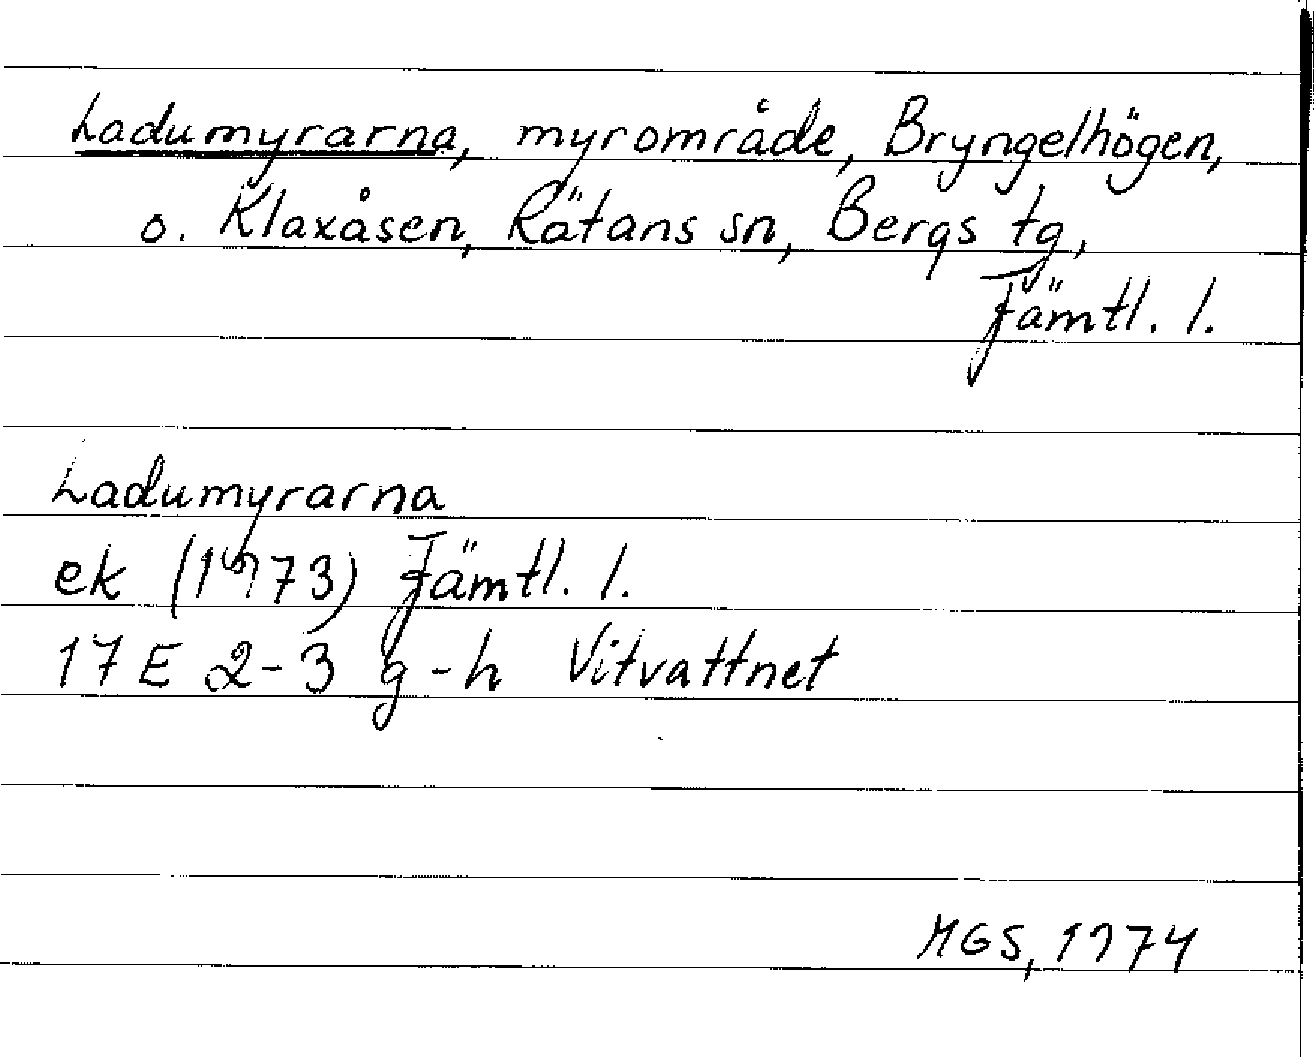 Ladumyrarna, myrområde, Bryngelhögen,
o. Klaxåsen, Rätans sn, Bergs tg,
Jämtl. l.
Ladumyrarna
ek (1973) Jämtl. l.
17 E 2-3 g-h Vitvattnet
MGS, 1974